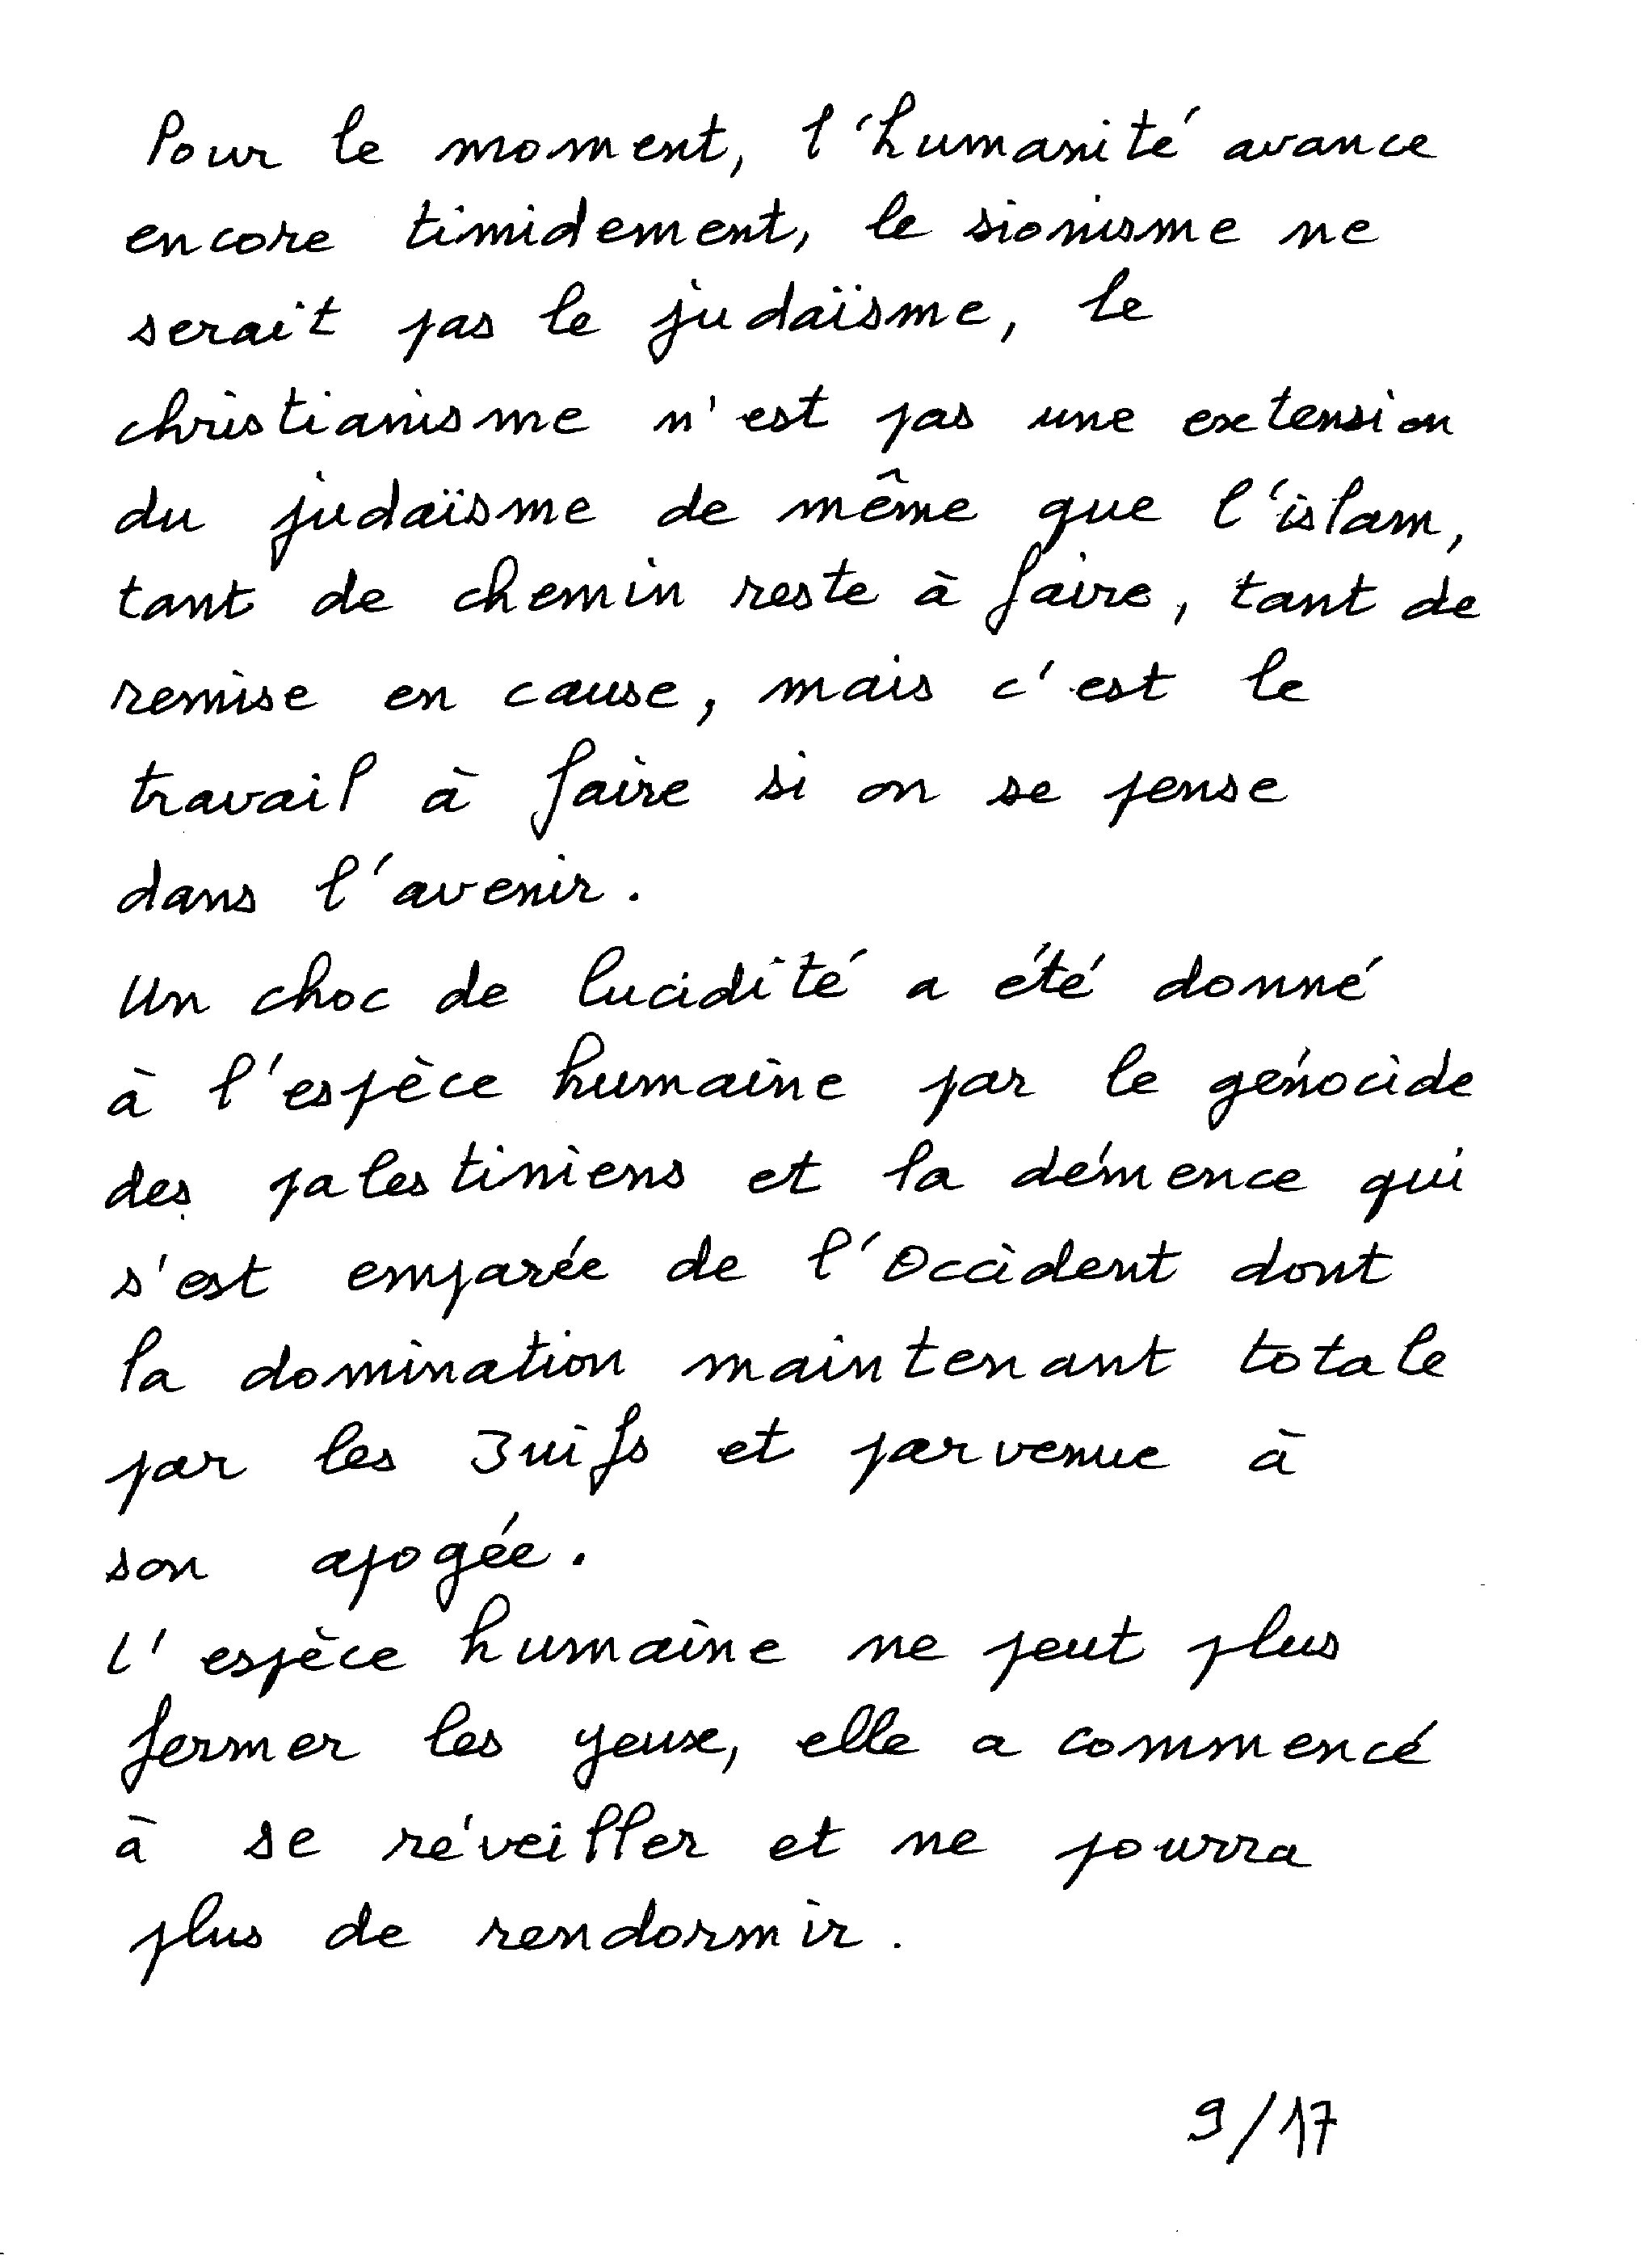 Pour le moment, l'humanité avance
encore timidement, le sionisme ne
serait pas le judaïsme, le
christianisme n'est pas une extension
du judaïsme de même que l'islam,
tant de chemin reste à faire, tant de
remise en cause, mais c'est le
travail à faire si on se pense
dans l'avenir.
Un choc de lucidité a été donné
à l'espèce humaine par le génocide
des palestiniens et la démence qui
s'est emparée de l'Occident dont
la domination maintenant totale
par les Juifs et parvenue à
son apogée.
L'espèce humaine ne peut plus
fermer les yeux, elle a commencé
à se réveiller et ne pourra
plus de rendormir.
9/17